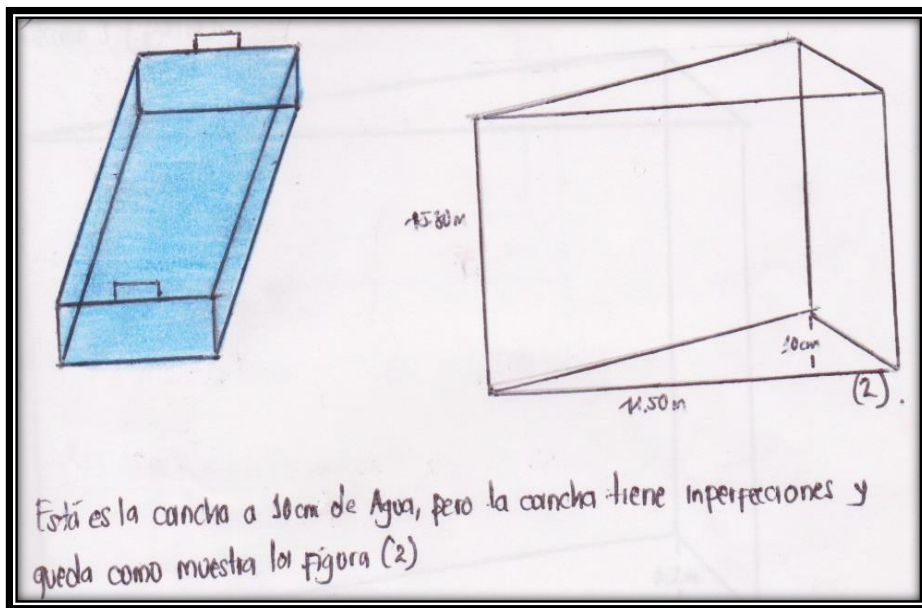 15.80 m
10cm
11.50 m
(2).
Está es la cancha a 10cm de Agua, pero la cancha tiene inperfecciones y
queda como muestra la figura (2)